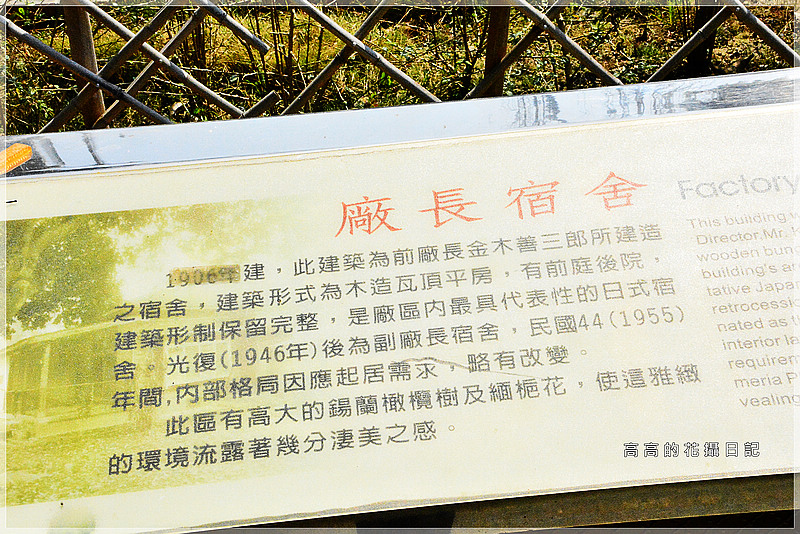 廠長宿舍
1906年建，此建築為前廠長金木善三郎所建造
之宿舍，建築形式為木造瓦頂平房，有前庭後院，
建築形制保留完整，是廠區內最具代表性的日式宿
舍。光復(1946年)後為副廠長宿舍，民國44(1955)
年間,內部格局因應起居需求，略有改變。
此區有高大的錫蘭橄欖樹及緬梔花，使這雅緻
的環境流露著幾分淒美之感。
Factory
This building w
Director,Mr. K
wooden bung
building's ar
tative Japan
retrocessio
nated as t
interior la
requirem
meria P
vealing
高高的花攝日記